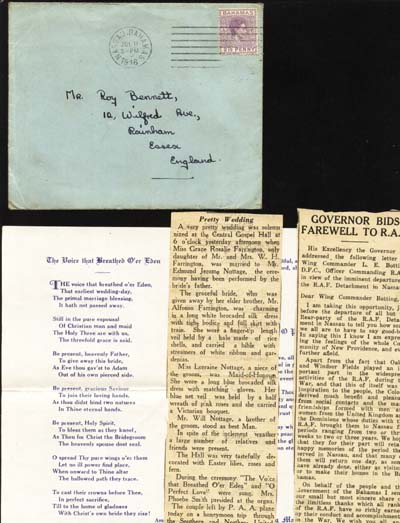 NASSAU BAHAMAS
JUL 11
5 - PM
1946
BAHAMAS
SIX PENNY
Mr. Roy Bennett,
10, Wilfred Ave.,
Rainham
Essex
England.
The Voice that Breathed O'er Eden
THE voice that breathed o'er Eden,
That earliest wedding-day,
The primal marriage blessing,
It hath not passed away.
Still in the pure espousal
Of Christian man and maid
The Holy Three are with us,
The threefold grace is said.
Be present, heavenly Father,
To give away this bride,
As Eve thou gav'st to Adam
Out of his own pierced side.
Be present, gracious Saviour
To join their loving hands,
As thou didst bind two natures
In Thine eternal bands.
Be present, Holy Spirit,
To bless them as they kneel,
As Thou for Christ the Bridegroom
The heavenly spouse dost seal.
O spread Thy pure wings o'er them
Let no ill power find place,
When onward to Thine altar
The hallowed path they trace.
To cast their crowns before Thee,
In perfect sacrifice,
Till to the home of gladness
With Christ's own bride they rise!
Pretty Wedding
A very pretty wedding was solemn
nized at the Central Gospel Hall at
6 o'clock yesterday afternoon when
Miss Grace Rosalie Farrington, only
daughter of Mr. and Mrs. W. H.
Farrington, was married to Mr.
Edmund Jerome Nottage, the cere-
mony having been performed by the
bride's father.
The graceful bride, who was
given away by her elder brother, Mr.
Alfonso Farrington, was charming
in a long white brocaded silk dress
with tight bodice and full skirt with
train. She wore a finger-tip length
veil held by a halo made of rice
shells, and carried a bible with
streamers of white ribbon and gar-
denias.
Miss Lorraine Nottage, a niece of
the groom, was Maid-of-Honour.
She wore a long blue brocaded silk
dress with matching gloves. Her
blue net veil was held by a half
wreath of pink roses and she carried
a Victorian bouquet.
Mr. Will Nottage, a brother of
the groom, stood as best Man.
In spite of the inclement weather
a large number of relatives and
friends were present.
The Hall was very tastefully de-
corated with Easter lilies, roses and
fern.
During the ceremony "The Voice
that Breathed O'er Eden" and "O
Perfect Love" were sung. Mrs.
Phoebe Smith presided at the organ.
The couple left by P. A. A. plane
today on a honeymoon trip through
GOVERNOR BIDS
FAREWELL TO R.A.
His Excellency the Governor
addressed the following letter
Wing Commander L. E. Botting
D.F.C., Officer Commanding R.A.
in view of the imminent departure
the R.A.F. Detachment in Nassau
Dear Wing Commander Botting,
I am taking this opportunity,
before the departure of all but
Rear-party of the R.A.F. Detach-
ment in Nassau to tell you how
we all are to have to say good-b
In saying this I know I am expres
ing the feelings of the whole Co
munity of New Providence, and ev
further afield.
Apart from the fact that Oak
and Windsor Fields played an i
portant part in the widespre
activities of the R.A.F. during
War, and that this of itself was
inspiration to the people, the Colo
derived much benefit and pleasu
from social contacts and the ma
friendships formed with men a
women from the United Kingdom a
the Dominions whose duties with
R.A.F. brought them to Nassau f
periods ranging from two or thr
weeks to two or three years. We ho
that they for their part will reta
happy memories of the period th
served in Nassau, and that many
them will return one day, as som
have already done, either as visito
or to make their homes in the B
hamas.
On behalf of the people and the
Government of the Bahamas I sen
our small but most sincere share
the limitless thanks which all rank
of the R.A.F. have so richly earned
by their conduct and accomplishment
in the War. We wish you